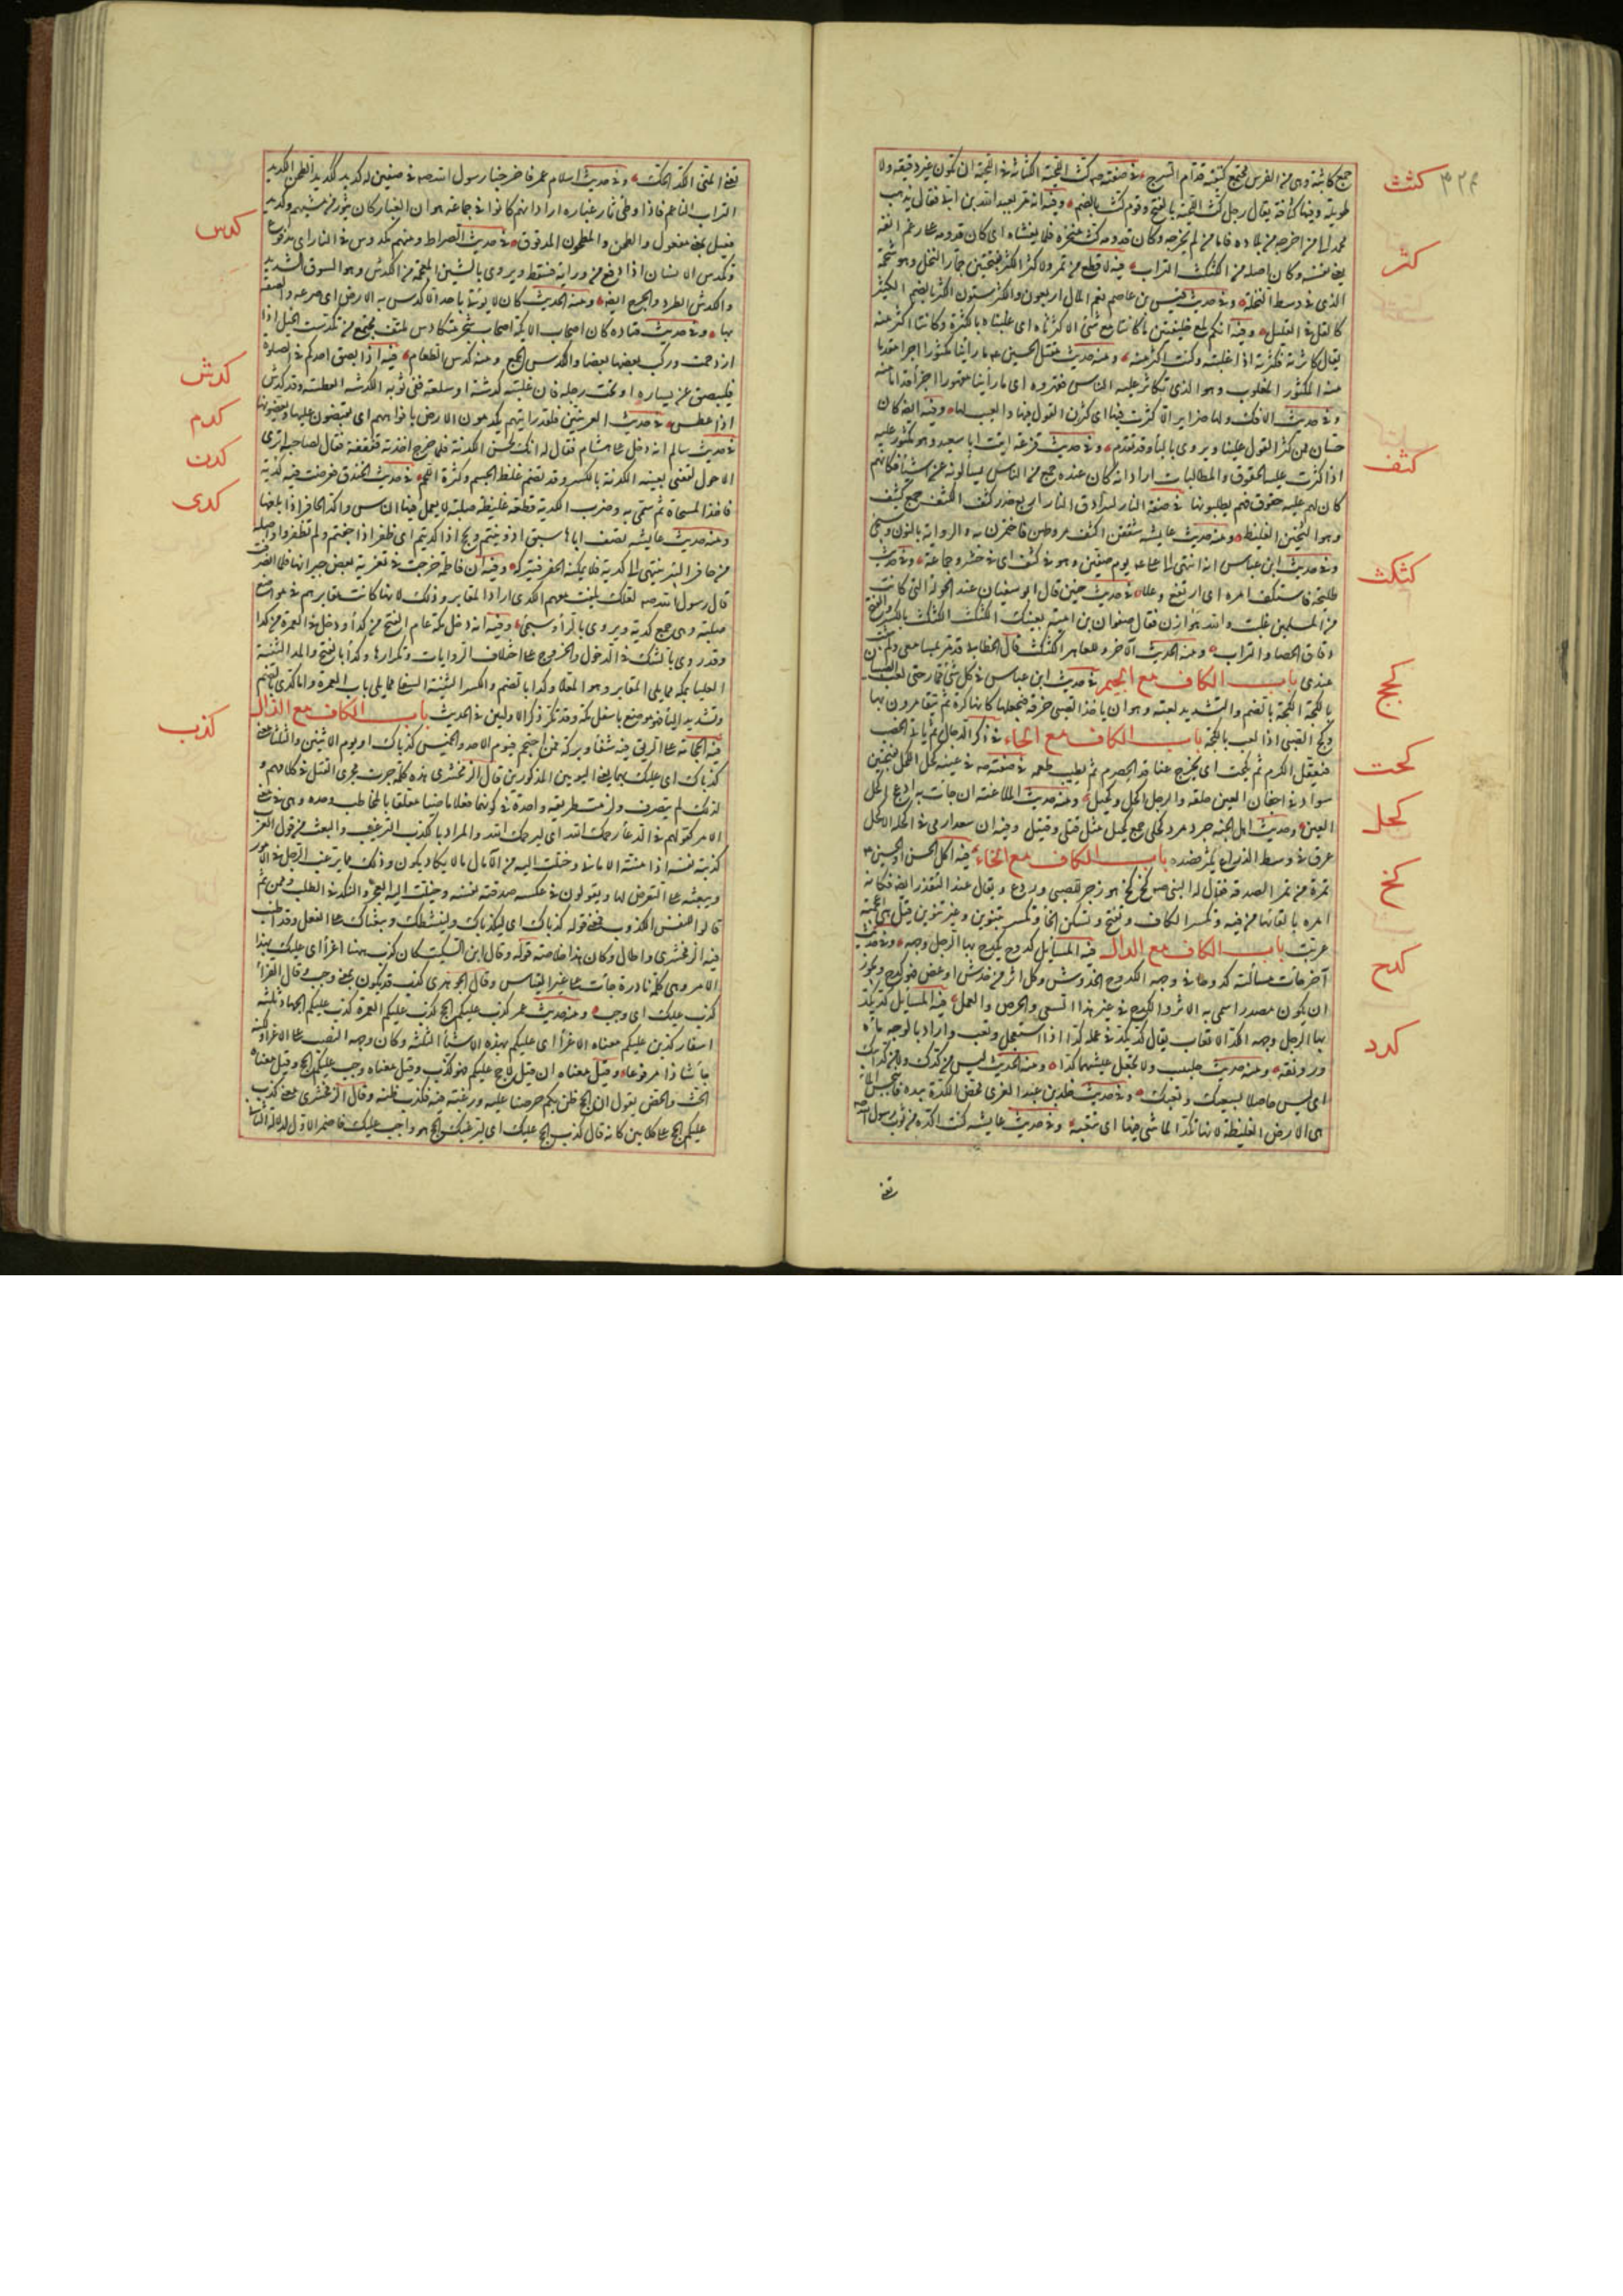 ٣٢٤
كثث
جمع كاثبة وهى من الفرس مجتمع كتفيه قدام السرج في صفته صه كث اللحية الكثاثة في اللحية ان تكون غير دقيقة ولا
طويلة وفيها كثافة يقال رجل كث اللحية بالفتح وقوم كث بالضم وفيه انه مر بعبد الله بن ابي فقال يذهب
محمد الى من اخرجه من بلاده فاما من لم يخرجه وكان قدومه كث منخره فلا يغشاه اى كان قدومه على رغم انفه
كثر
يعنى نفسه وكان اصله من الكثكث التراب فيه لا قطع في ثمر ولا كثر الكثر بفتحتين جمار النخل وهو شحمه
الذى في وسط النخلة وفي حديث قيس بن عاصم نعم المال اربعون والكثر ستون الكثر بالضم الكثير
كالقل في القليل وفيه انكم لمع خليقتين ما كانتا مع شئ الا كثرتاه اى غلبتاه بالكثرة وكانتا اكثر منه
يقال كاثرته فكثرته اذا غلبته وكنت اكثر منه ومنه حديث مقتل الحسين ما راينا مكثورا اجرا مقدما
منه المكثور المغلوب وهو الذى تكاثر عليه الناس فقهروه اى ما رأينا مقهورا اجرأ اقداما منه
وفي حديث الافك ولها ضراير الا كثرن فيها اى كثرن القول فيها والعيب لها وفيه ايضا وكان
حسان ممن كثر القول عليها ويروى بالباء وقد تقدم وفي حديث قزعة اتيت ابا سعيد وهو مكثور عليه
كثف
اذا كثرت عليه الحقوق والمطالبات اراد انه كان عنده جمع من الناس يسالونه عن اشياء فكانهم
كان لهم عليه حقوق فهم يطلبونها في صفة النار لسرادق النار اربع جدر كثف الكثف جمع كثيف
وهو الثخين الغليظ ومنه حديث عايشه شققن اكثف مروطهن فاختمرن به والرواية بالنون وسيجئ
وفي حديث ابن عباس انه انتهى الى على يوم صفين وهو في كثف اى في حشد وجماعة وفي حديث
كثكث
طليحة فاستكثف امره اى ارتفع وعلا في حديث حنين قال ابو سفيان عند الجولة التى كانت
من المسلمين غلبت والله هوازن فقال صفوان بن امية بفيك الكثكث الكثكث بالكسر والفتح
دقاق الحصا والتراب ومنه الحديث الاخر وللعاهر الكثكث قال الخطابى قد مر بمسامعى ولم يثبت
كجج
عندى باب الكاف مع الجيم في حديث ابن عباس في كل شئ قمار حتى لعب الصبيان
بالكجة الكجة بالضم والتشديد لعبة وهو ان ياخذ الصبى خرقة فيجعلها كانها كرة ثم يتقامرون بها
وكج الصبى اذا لعب بالكجة باب الكاف مع الحاء في ذكر الدجال ثم ياتى الخصب
كحت
فيعقل الكرم ثم يكحت اى يخرج عناقيد الحصرم ثم يطيب طعمه في صفته صه في عينيه كحل الكحل بفتحتين
كحل
سواد في اجفان العين خلقة والرجل اكحل وكحيل ومنه حديث الملاعنة ان جائت به ادعج اكحل
العين وحديث اهل الجنة جرد مرد كحلى جمع كحيل مثل قتلى وقتيل وفيه ان سعدا رمى في اكحله الاكحل
كخ
عرق في وسط الذراع يكثر فصده باب الكاف مع الخاء فيه اكل الحسن او الحسين
تمرة من تمر الصدقة فقال له النبى صه كخ كخ هو زجر للصبى وردع ويقال عند التقذر ايضا فكانه
امره بالقائها من فيه وتكسر الكاف وتفتح وتسكن الخاء وتكسر بتنوين وغير تنوين قيل هى اعجمية
كدح
عربت باب الكاف مع الدال فيه المسايل كدوح يكدح بها الرجل وجهه وفي حديث
آخر جائت مسألته كدوحا في وجهه الكدوح الخدوش وكل اثر من خدش او عض فهو كدح ويجوز
ان يكون مصدرا سمى به الاثر والكدح في غير هذا السعى والحرص والعمل فيه المسايل كد يكد
كدد
بها الرجل وجهه الكد الاتعاب يقال كد يكد في عمله كدا اذا استعجل وتعب واراد بالوجه ماءه
ورونقه ومنه حديث جليبيب ولا تجعل عيشهما كدا ومنه الحديث ليس من كدك ولا كد ابيك
اى ليس حاصلا بسعيك وتعبك وفي حديث خالد بن عبد العزى فحص الكدة بيده فانبجس الماء
هى الارض الغليظة لانها تكد الماشى فيها اى تتعبه وفي حديث عايشه كنت اكده من ثوب رسول الله صه
يعنى
يعنى المنى الكد الحك وفي حديث اسلام عمر فاخرجنا رسول الله صه في صفين له كديد ككديد الطحين الكديد
التراب الناعم فاذا وطئ ثار غباره اراد انهم كانوا في جماعة وان الغبار كان يثور من مشيهم وكديد
كدس
فعيل بمعنى مفعول والطحين والمطحون المدقوق في حديث الصراط ومنهم مكدوس في النار اى مدفوع
وتكدس الانسان اذا دفع من ورائه فسقط ويروى بالشين المعجمة من الكدش وهو السوق الشديد
والكدش الطرد والجرح ايضا ومنه الحديث كان لا يؤتى باحد الا كدس به الارض اى صرعه والصقه
بها وفي حديث قتاده كان اصحاب الايكة اصحاب شجر متكادس ملتف مجتمع من تكدست الخيل اذا
ازدحمت وركب بعضها بعضا والكدس الجمع ومنه كدس الطعام فيه اذا بصق احدكم في الصلوة
كدش
فليبصق عن يساره او تحت رجله فان غلبته كدشة او سعلة ففى ثوبه الكدشه العطسه وقد كدش
كدم
اذا عطس في حديث العرنيين فلقد رايتهم يكدمون الارض بافواههم اى يقبضون عليها ويعضونها
كدن
في حديث سالم انه دخل على هشام فقال له انك لحسن الكدنة فلما خرج اخذته قفقفة فقال لصاحبه اترى
الاحول لقعنى بعينه الكدنة بالكسر وقد تضم غلظ الجسم وكثرة اللحم في حديث الخندق فعرضت فيه كدية
كدى
فاخذ المسحاة ثم سمى به وضرب الكدية قطعة غليظة صلبة لا يعمل فيها الفاس واكدى الحافر اذا بلغها
ومنه حديث عايشه تصف اباها سبق اذ ونيتم ونجح اذ اكديتم اى ظفر اذ خبتم ولم تظفروا واصله
من حافر البئر ينتهى الى كدية فلا يمكنه الحفر فيتركه وفيه ان فاطمة خرجت في تعزية بعض جيرانها فلما انصرفت
قال رسول الله صه لعلك بلغت معهم الكدى اراد المقابر وذلك لانها كانت مقابرهم في مواضع
صلبة وهى جمع كدية ويروى بالراء وسيجئ وفيه انه دخل مكة عام الفتح من كداء ودخل في العمرة من كدا
وقد روى بالشك في الدخول والخروج على اختلاف الروايات وتكرارها وكداء بالفتح والمد الثنية
العليا بمكة مما يلى المقابر وهو المعلا وكدا بالضم والكسر الثنية السفلى مما يلى باب العمرة واما كدى بالضم
كذب
وتشديد الياء فهو موضع باسفل مكة وقد تكرر ذكر الاولين في الحديث باب الكاف مع الذال
فيه الحجامة على الريق فيه شفاء وبركة فمن احتجم فيوم الاحد والخميس كذباك او يوم الاثنين والثلثاء معنى
كذباك اى عليك بهما يعنى اليومين المذكورين قال الزمخشرى هذه كلمة جرت مجرى المثل في كلامهم و
لذلك لم يتصرف ولزمت طريقة واحدة في كونها فعلا ماضيا معلقا بالمخاطب وحده وهى في معنى
الامر كقولهم في الدعاء رحمك الله اى ليرحمك الله والمراد بالكذب الترغيب والبعث من قول العرب
كذبته نفسه اذا منته الامانى وخيلت اليه من الآمال ما لا يكاد يكون وذلك مما يرغب الرجل في الامور
ويبعثه على التعرض لها ويقولون في عكسه صدقته نفسه وخيلت اليه العجز والنكد في الطلب ومن ثم
قالوا للنفس الكذوب فمعنى قوله كذباك اى ليكذباك ولينشطاك ويبعثاك على الفعل وقد اطنب
فيه الزمخشرى واطال وكان هذا خلاصة قوله وقال ابن السكيت كان كذب ههنا اغراء اى عليك بهذا
الامر وهى كلمة نادرة جائت على غير القياس وقال الجوهرى كذب قد يكون بمعنى وجب وقال الفراء
كذب عليك اى وجب ومنه حديث عمر كذب عليكم الحج كذب عليكم العمرة كذب عليكم الجهاد ثلثة
اسفار كذبن عليكم معناه الاغراء اى عليكم بهذه الاشياء الثلثة وكان وجهه النصب على الاغراء ولكنه
جاء شاذا مرفوعا وقيل معناه ان قيل لا حج عليكم فهو كذب وقيل معناه وجب عليكم الحج وقيل معناه
الحث والحض يقول ان الحج ظن بكم حرصا عليه ورغبة فيه فكذب ظنه وقال الزمخشرى معنى كذب
عليكم الحج على كلامين كانه قال كذب الحج عليك اى ليرغبك الحج هو واجب عليك فاضمر الاول لدلالة الثانى